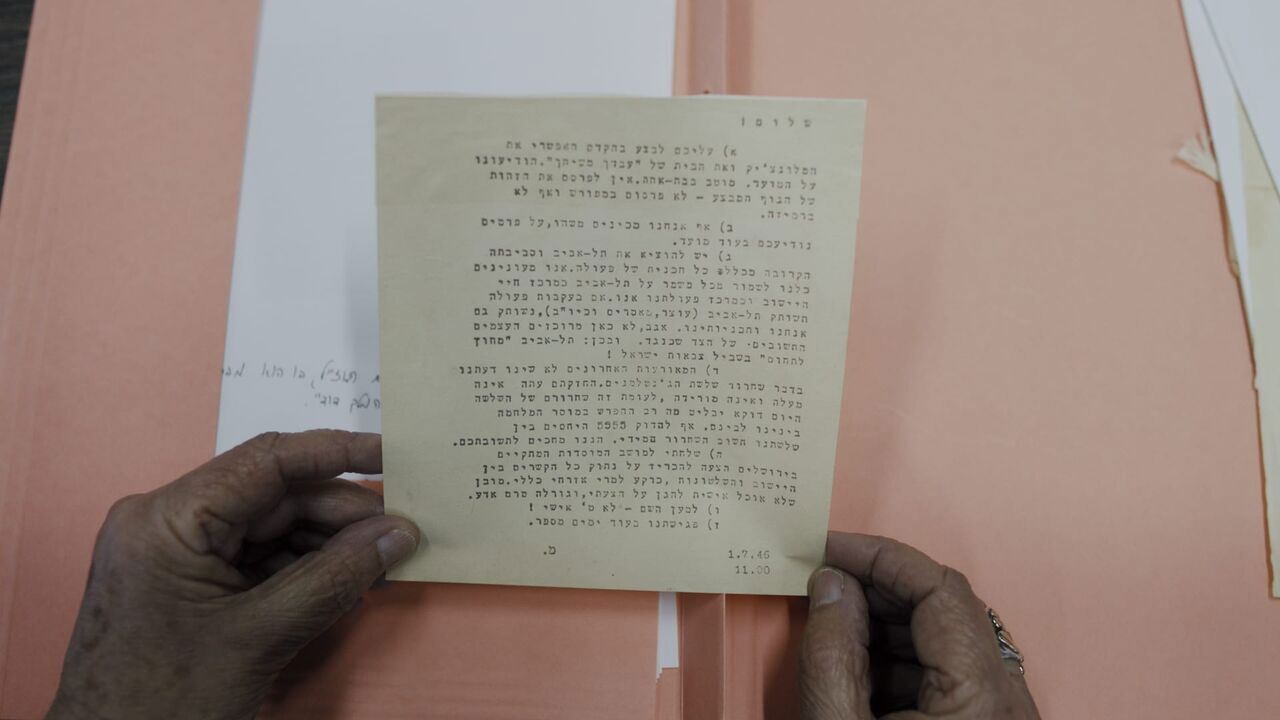 שלום !
א) עליכם לבצע בהקדם האפשרי את
המלונצ'יק ואת הבית של "עבדך משיחך". הודיעונו
על המועד. מוטב בבת-אחת. אין לפרסם את הזהות
של הגוף המבצע – לא פרסום במפורש ואף לא
ברמיזה.
ב) אף אנחנו מכינים משהו, על פרטים
נודיעכם בעוד מועד.
ג) יש להוציא את תל-אביב וסביבתה
הקרובה מכלל כל תכנית של פעולה. אנו מעונינים
כלנו לשמור מכל משמר על תל-אביב כמרכז חיי
הישוב וכמרכז פעולתנו אנו. אם בעקבות פעולה
תשותק תל-אביב (עוצר, מאסרים וכיו"ב), נשותק גם
אנחנו ותכניותינו. אגב, לא כאן מרוכזים העצמים
החשובים של הצד שכנגד. ובכן: תל-אביב "מחוץ
לתחום" בשביל צבאות ישראל !
ד) המאורעות האחרונים לא שינו דעתנו
בדבר שחרור שלשת הג'נטלמנים. החזקתם עתה אינה
מעלה ואינה מורידה, לעומת זה שחרורם של השלשה
היום דוקא יבליט מה רב ההפרש במוסר המלחמה
בינינו לבינם. אף להדוק היחסים בין
שלשתנו חשוב השחרור המידי. הננו מחכים לתשובתכם.
ה) שלחתי למושב המוסדות המתקיים
בירושלים הצעה להכריז על נתוק כל הקשרים בין
הישוב והשלטונות, כרקע למרי אזרחי כללי. מובן
שלא אוכל אישית להגן על הצעתי, וגורלה טרם אדע.
ו) למען השם – לא מ' אישי !
ז) פגישתנו בעוד ימים מספר.
מ.
1.7.46
11.00